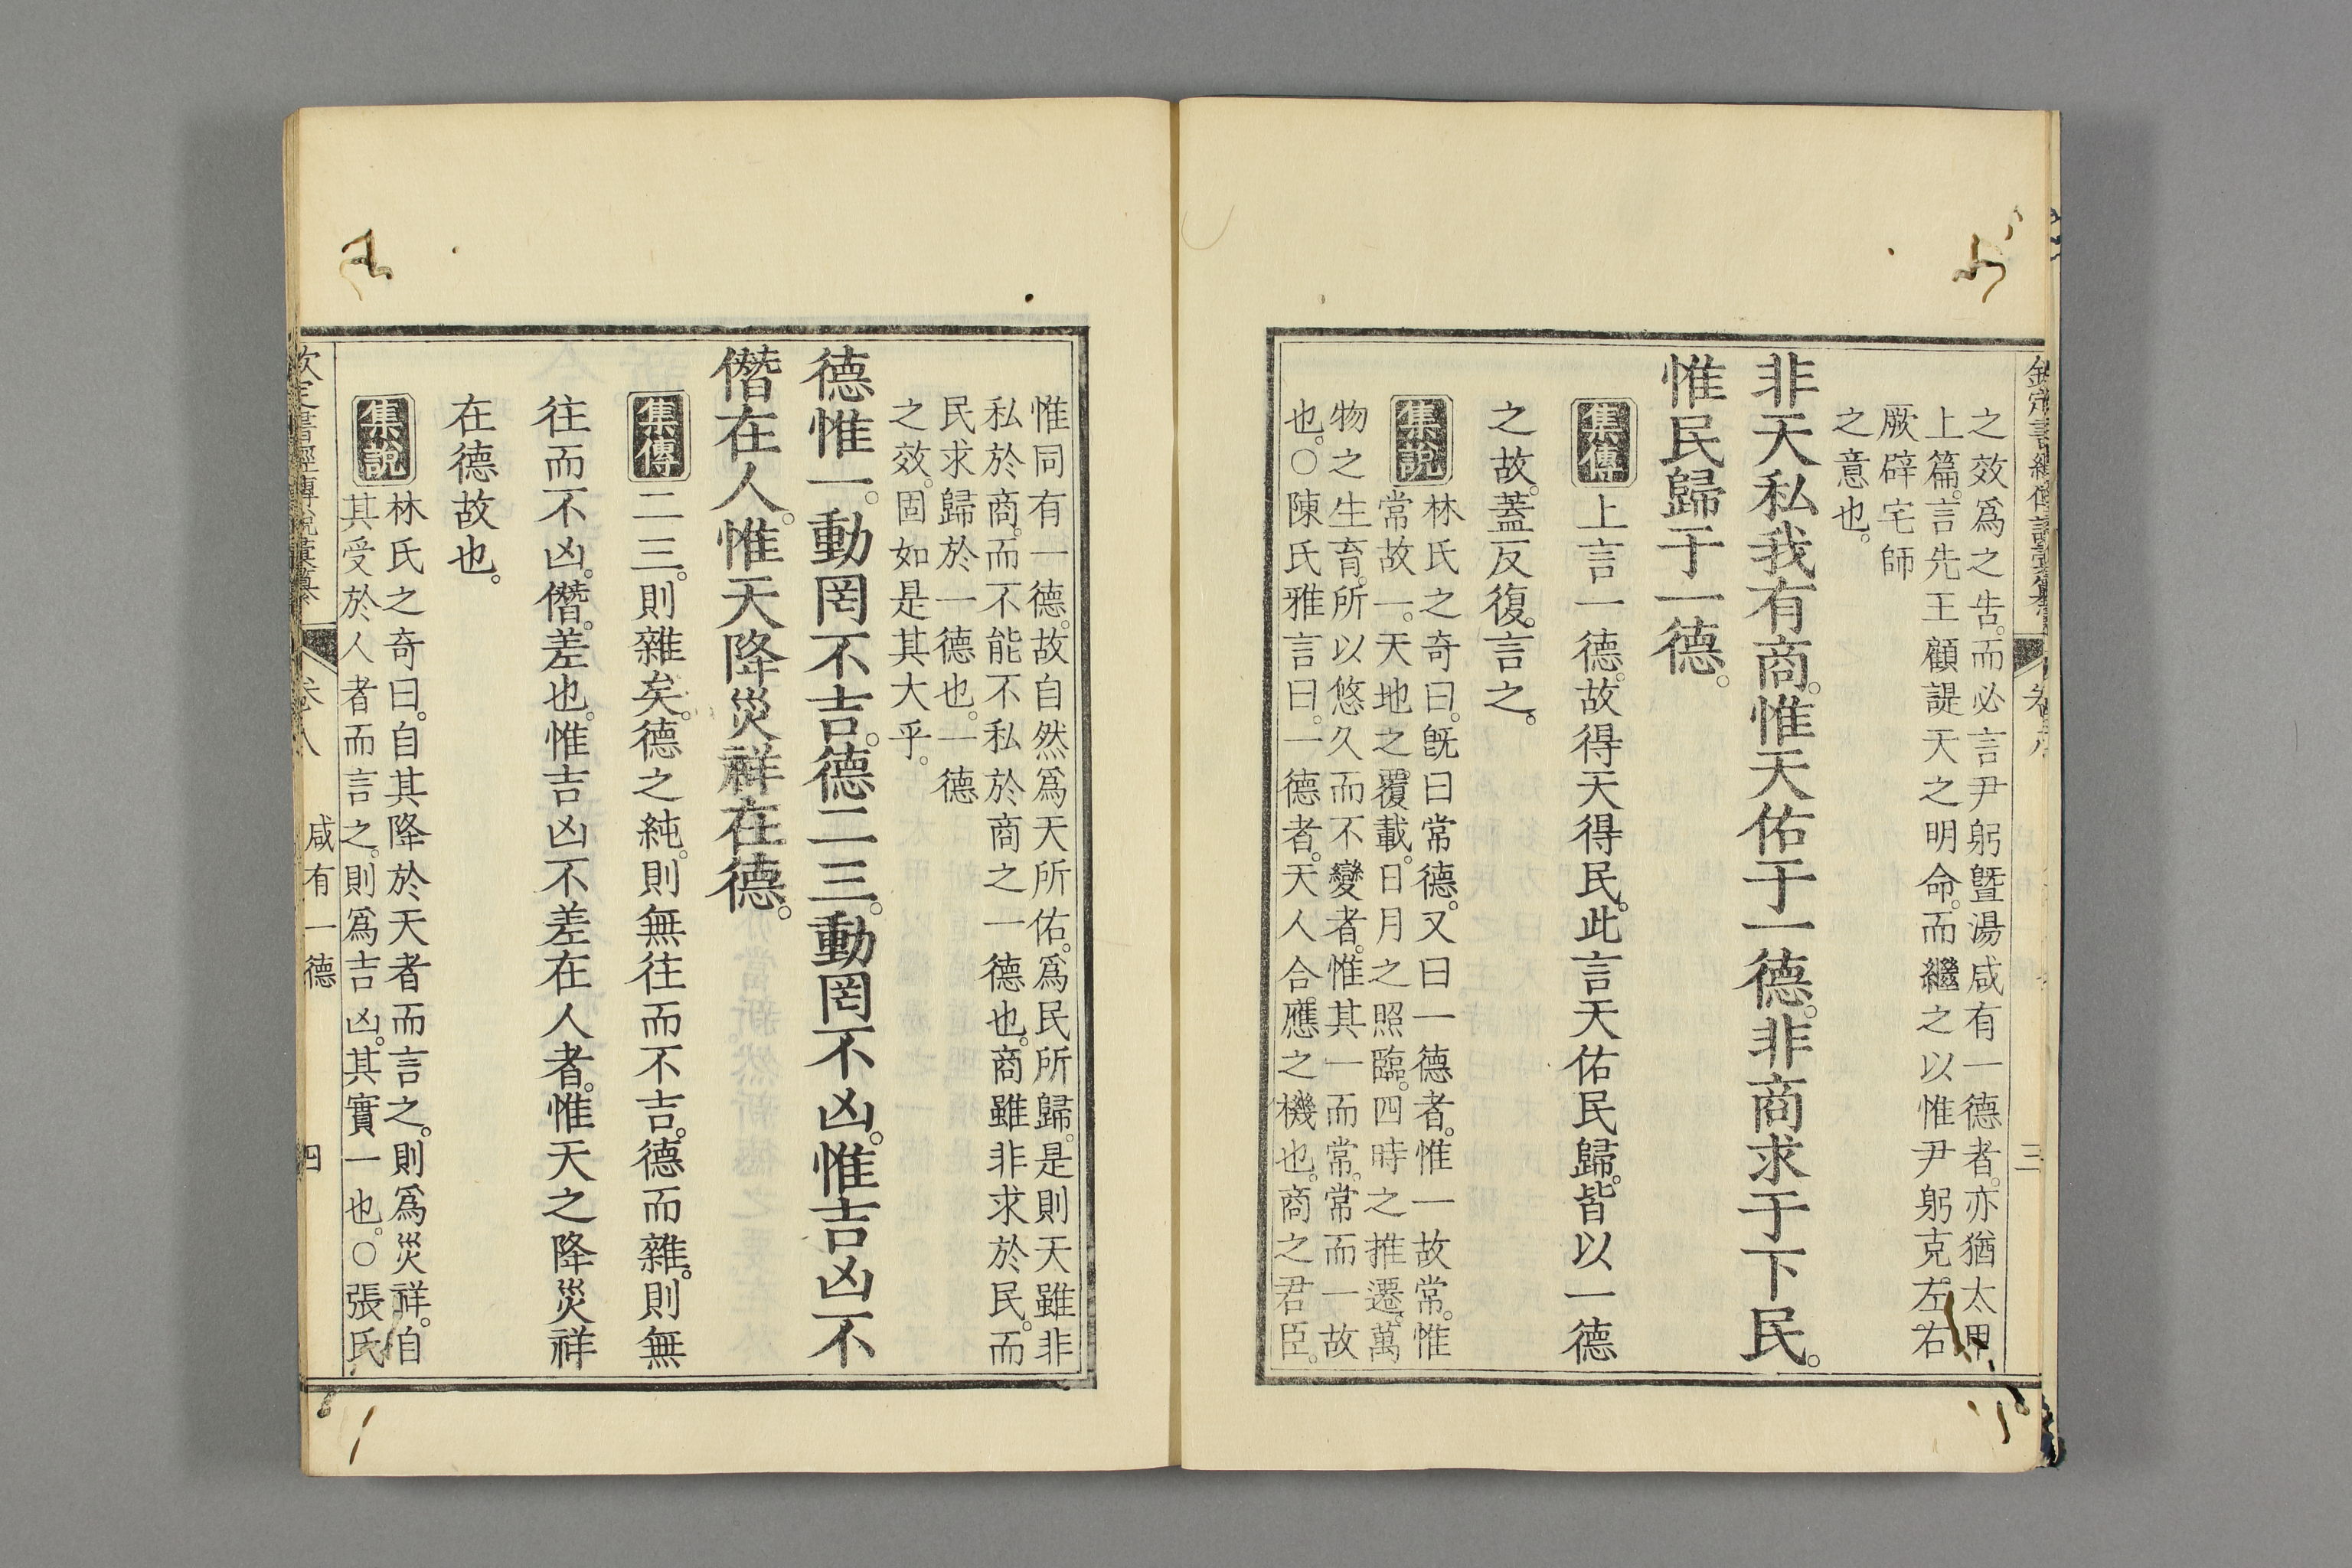 欽定書經傳說彙纂 卷 三
之效爲之告。而必言尹躬曁湯咸有一德者。亦猶太甲
上篇。言先王顧諟天之明命。而繼之以惟尹躬克左右
厥辟宅師
之意也。
非天私我有商。惟天佑于一德。非商求于下民。
惟民歸于一德。
集傳 上言一德。故得天得民。此言天佑民歸。皆以一德
之故。蓋反復。言之。
集說 林氏之奇曰。旣曰常德。又曰一德者。惟一故常。惟
常故一。天地之覆載。日月之照臨。四時之推遷。萬
物之生育。所以悠久而不變者。惟其一而常。常而一故
也。○陳氏雅言曰。一德者。天人合應之機也。商之君臣。
惟同有一德。故自然爲天所佑。爲民所歸。是則天雖非
私於商。而不能不私於商之一德也。商雖非求於民。而
民求歸於一德也。一德
之效。固如是其大乎。
德惟一。動罔不吉。德二三。動罔不凶。惟吉凶不
僭在人。惟天降災祥在德。
集傳 二三。則雜矣。德之純。則無往而不吉。德而雜。則無
往而不凶。僭。差也。惟吉凶不差在人者。惟天之降災祥
在德故也。
集說 林氏之奇曰。自其降於天者而言之。則爲災祥。自
其受於人者而言之。則爲吉凶。其實一也。○張氏
欽定書經傳說彙纂 卷八 咸有一德 四